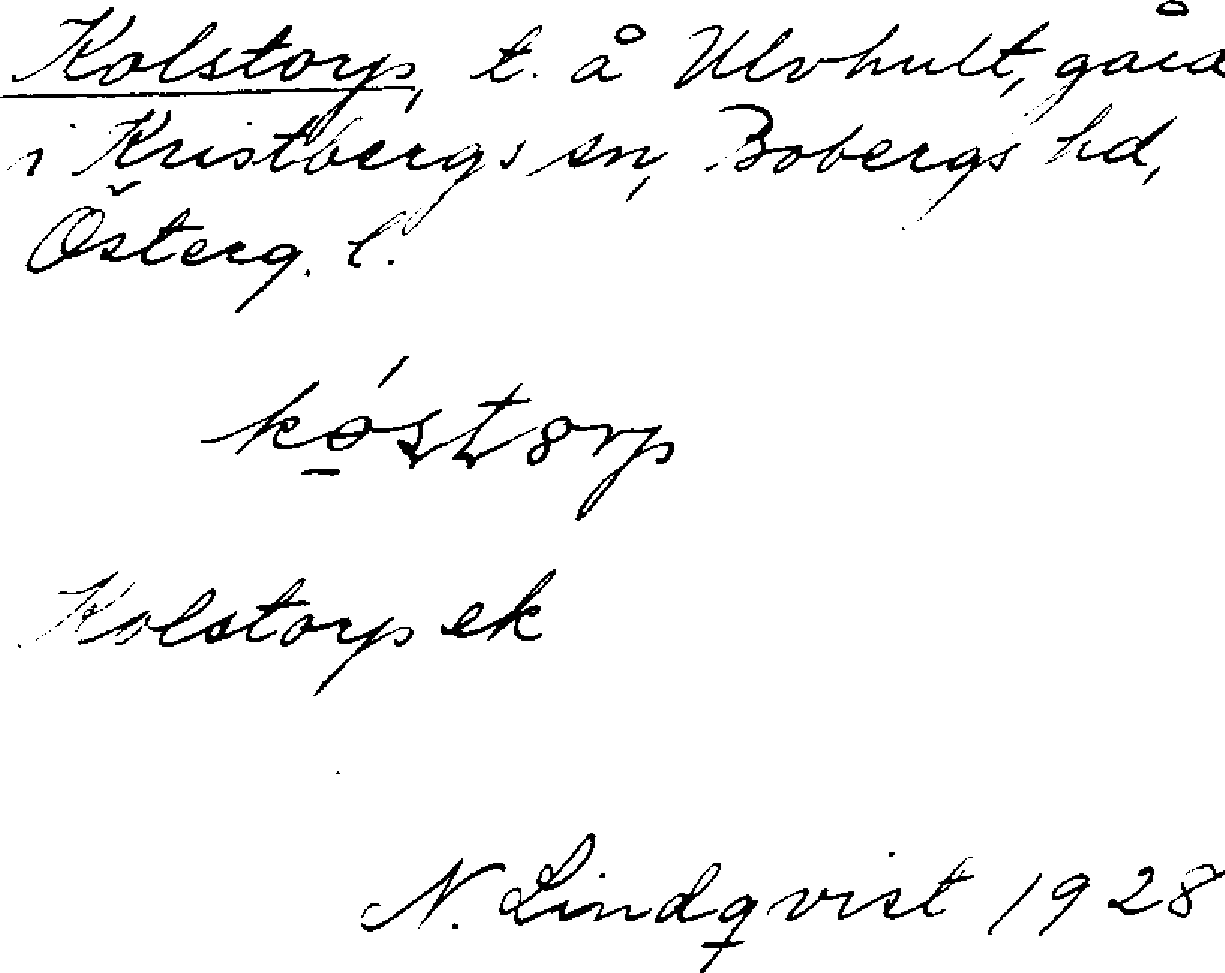 Kolstorp, t. å Ulvhult, gård
i Kristbergs sn, Bobergs hd,
Österg. l.
Kolstorp ek
N. Lindqvist 1928